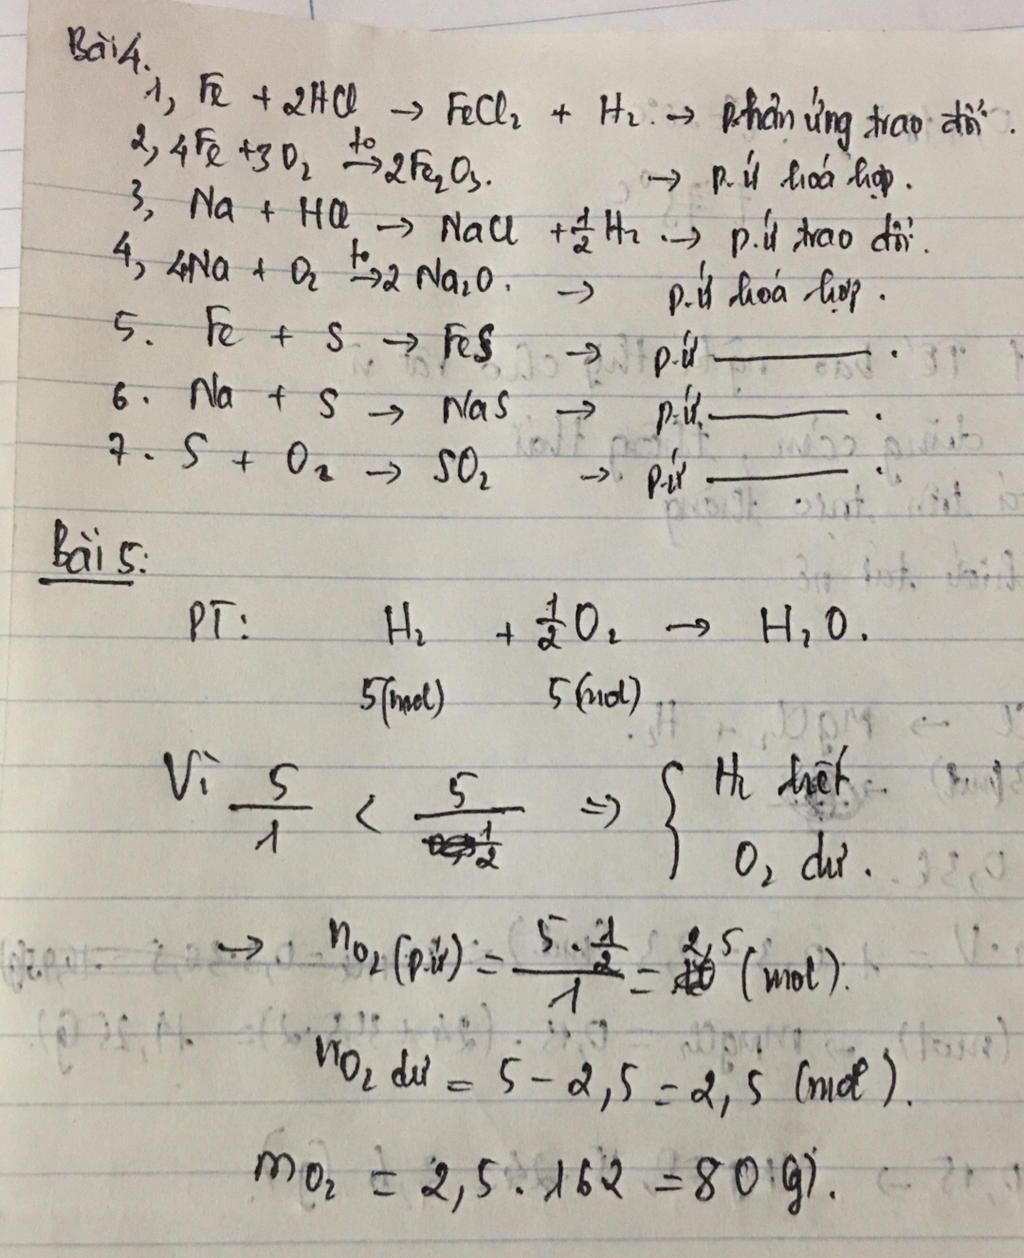 Bài 4.
1, Fe + 2HCl → FeCl₂ + H₂. → phản ứng trao đổi.
2, 4Fe + 3O₂ →(to) 2Fe₂O₃. → p.ứ hoá hợp.
3, Na + HCl → NaCl + 1/2 H₂. → p.ứ trao đổi.
4, 4Na + O₂ →(to) 2Na₂O. → p.ứ hoá hợp.
5. Fe + S → FeS → p.ứ ———.
6. Na + S → NaS → p.ứ ———.
7. S + O₂ → SO₂ → p.ứ ———.
Bài 5:
PT: H₂ + 1/2 O₂ → H₂O.
5(mol) 5(mol)
Vì 5/1 < 5/(1/2) ⇒ { H₂ hết.
O₂ dư.
→ nO₂ (p.ứ) = (5 . 1/2)/1 = 2,5 (mol).
nO₂ dư = 5 - 2,5 = 2,5 (mol).
mO₂ = 2,5 . 16 2 = 80 (g).